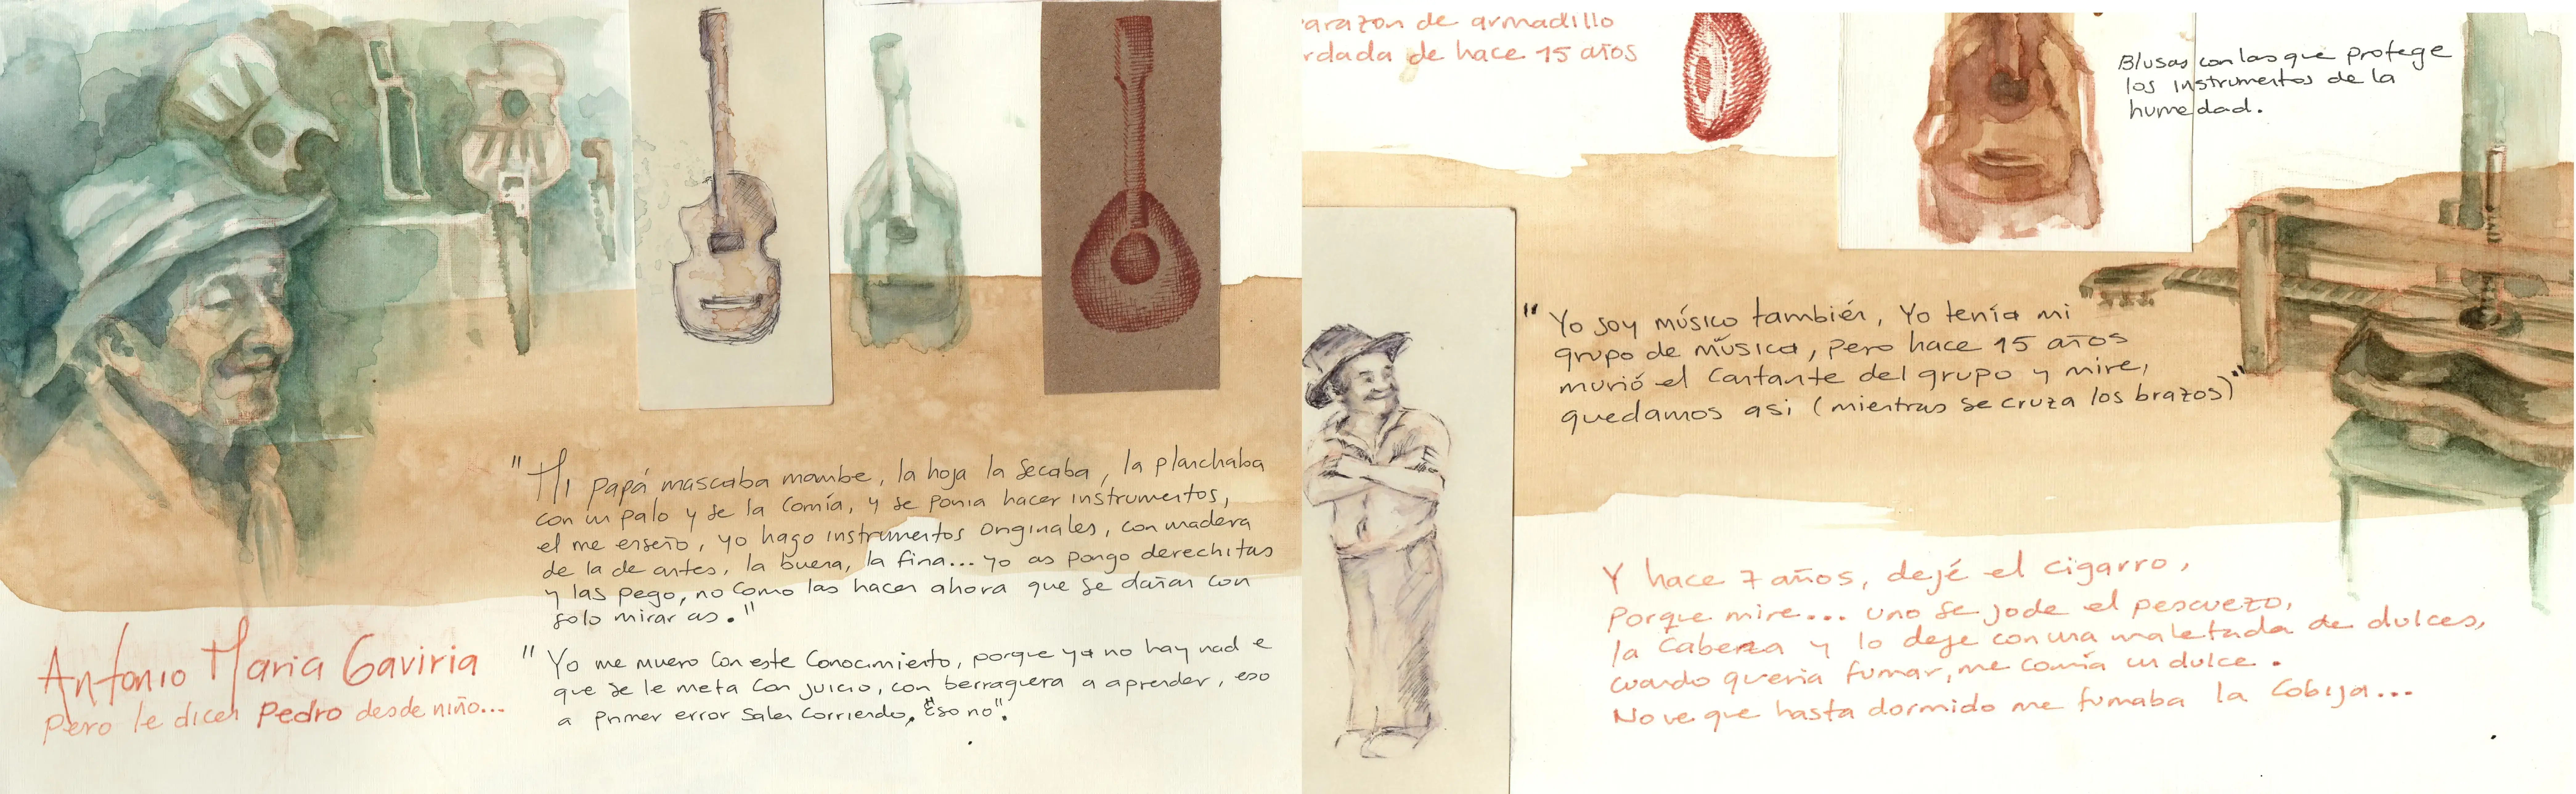 "Mi papá mascaba mambe, la hoja la secaba, la planchaba
con un palo y se la comía, y se ponia hacer instrumentos,
el me enseño, yo hago instrumentos originales, con madera
de la de antes, la buena, la fina... yo as pongo derechitas
y las pego, no como las hacen ahora que se dañan con
solo mirar as."
"Yo me muero con este conocimiento, porque ya no hay nad e
que se le meta con juicio, con berraquera a aprender, eso
a primer error salen corriendo, "Eso no".
Antonio Maria Gaviria
Pero le dicen Pedro desde niño...
arazon de armadillo
rdada de hace 15 años
Blusas con las que protege
los instrumentos de la
humedad.
"Yo soy músico también, Yo tenía mi
grupo de música, pero hace 15 años
murió el cantante del grupo y mire,
quedamos asi (mientras se cruza los brazos)"
Y hace 7 años, dejé el cigarro,
Porque mire... uno se jode el pescuezo,
la cabeza y lo deje con una maletada de dulces,
cuando queria fumar, me comía un dulce.
No ve que hasta dormido me fumaba la cobija...